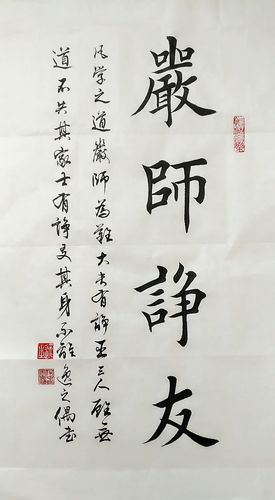 嚴師諍友
凡學之道嚴師為難大夫有諍臣三人雖無
道不失其家士有諍友其身不離逸之偶書